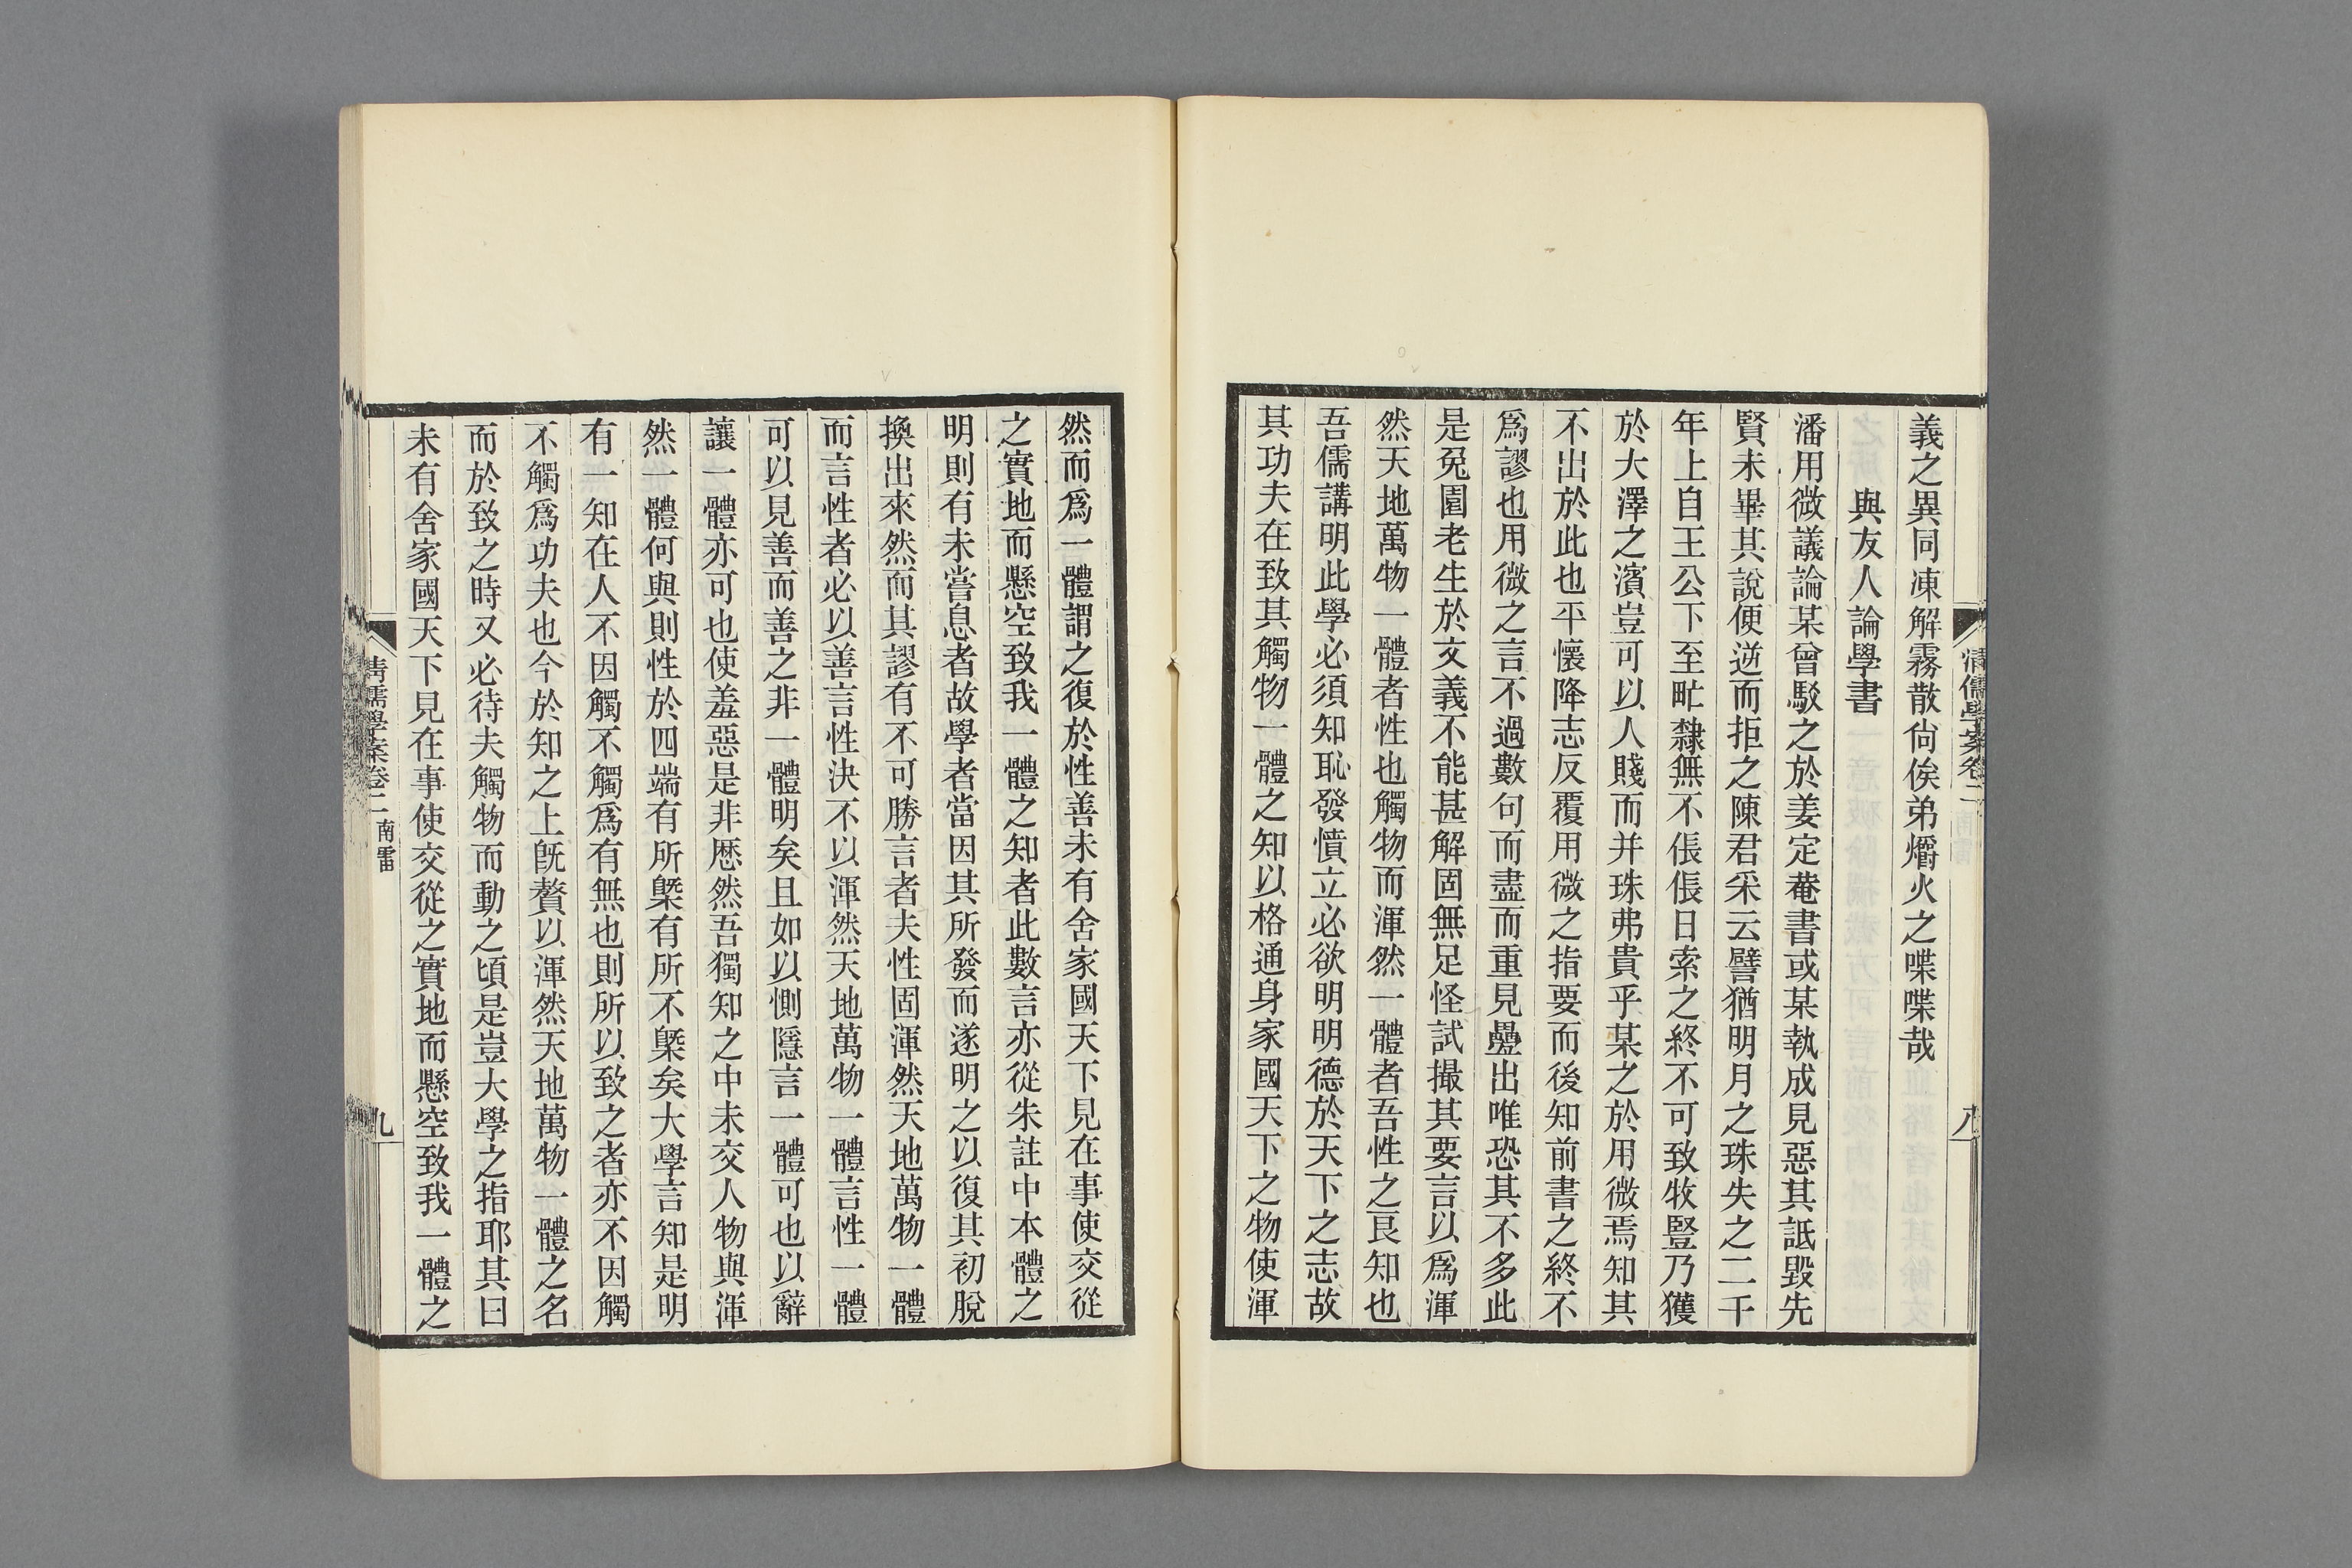 義之異同凍解霧散尙俟弟爝火之喋喋哉
與友人論學書
潘用微議論某曾駁之於姜定菴書或某執成見惡其詆毀先
賢未畢其說便逆而拒之陳君采云譬猶明月之珠失之二千
年上自王公下至甿隸無不倀倀日索之終不可致牧豎乃獲
於大澤之濱豈可以人賤而并珠弗貴乎某之於用微焉知其
不出於此也平懷降志反覆用微之指要而後知前書之終不
爲謬也用微之言不過數句而盡而重見疊出唯恐其不多此
是兔園老生於文義不能甚解固無足怪試撮其要言以爲渾
然天地萬物一體者性也觸物而渾然一體者吾性之良知也
吾儒講明此學必須知恥發憤立必欲明明德於天下之志故
其功夫在致其觸物一體之知以格通身家國天下之物使渾
清儒學案卷二
八
然而爲一體謂之復於性善未有舍家國天下見在事使交從
之實地而懸空致我一體之知者此數言亦從朱註中本體之
明則有未嘗息者故學者當因其所發而遂明之以復其初脫
換出來然而其謬有不可勝言者夫性固渾然天地萬物一體
而言性者必以善言性決不以渾然天地萬物一體言性一體
可以見善而善之非一體明矣且如以惻隱言一體可也以辭
讓一體亦可也使羞惡是非厯然吾獨知之中未交人物與渾
然一體何與則性於四端有所槩有所不槩矣大學言知是明
有一知在人不因觸不觸爲有無也則所以致之者亦不因觸
不觸爲功夫也今於知之上旣贅以渾然天地萬物一體之名
而於致之時又必待夫觸物而動之頃是豈大學之指耶其曰
未有舍家國天下見在事使交從之實地而懸空致我一體之
清儒學案卷二 南雷
九